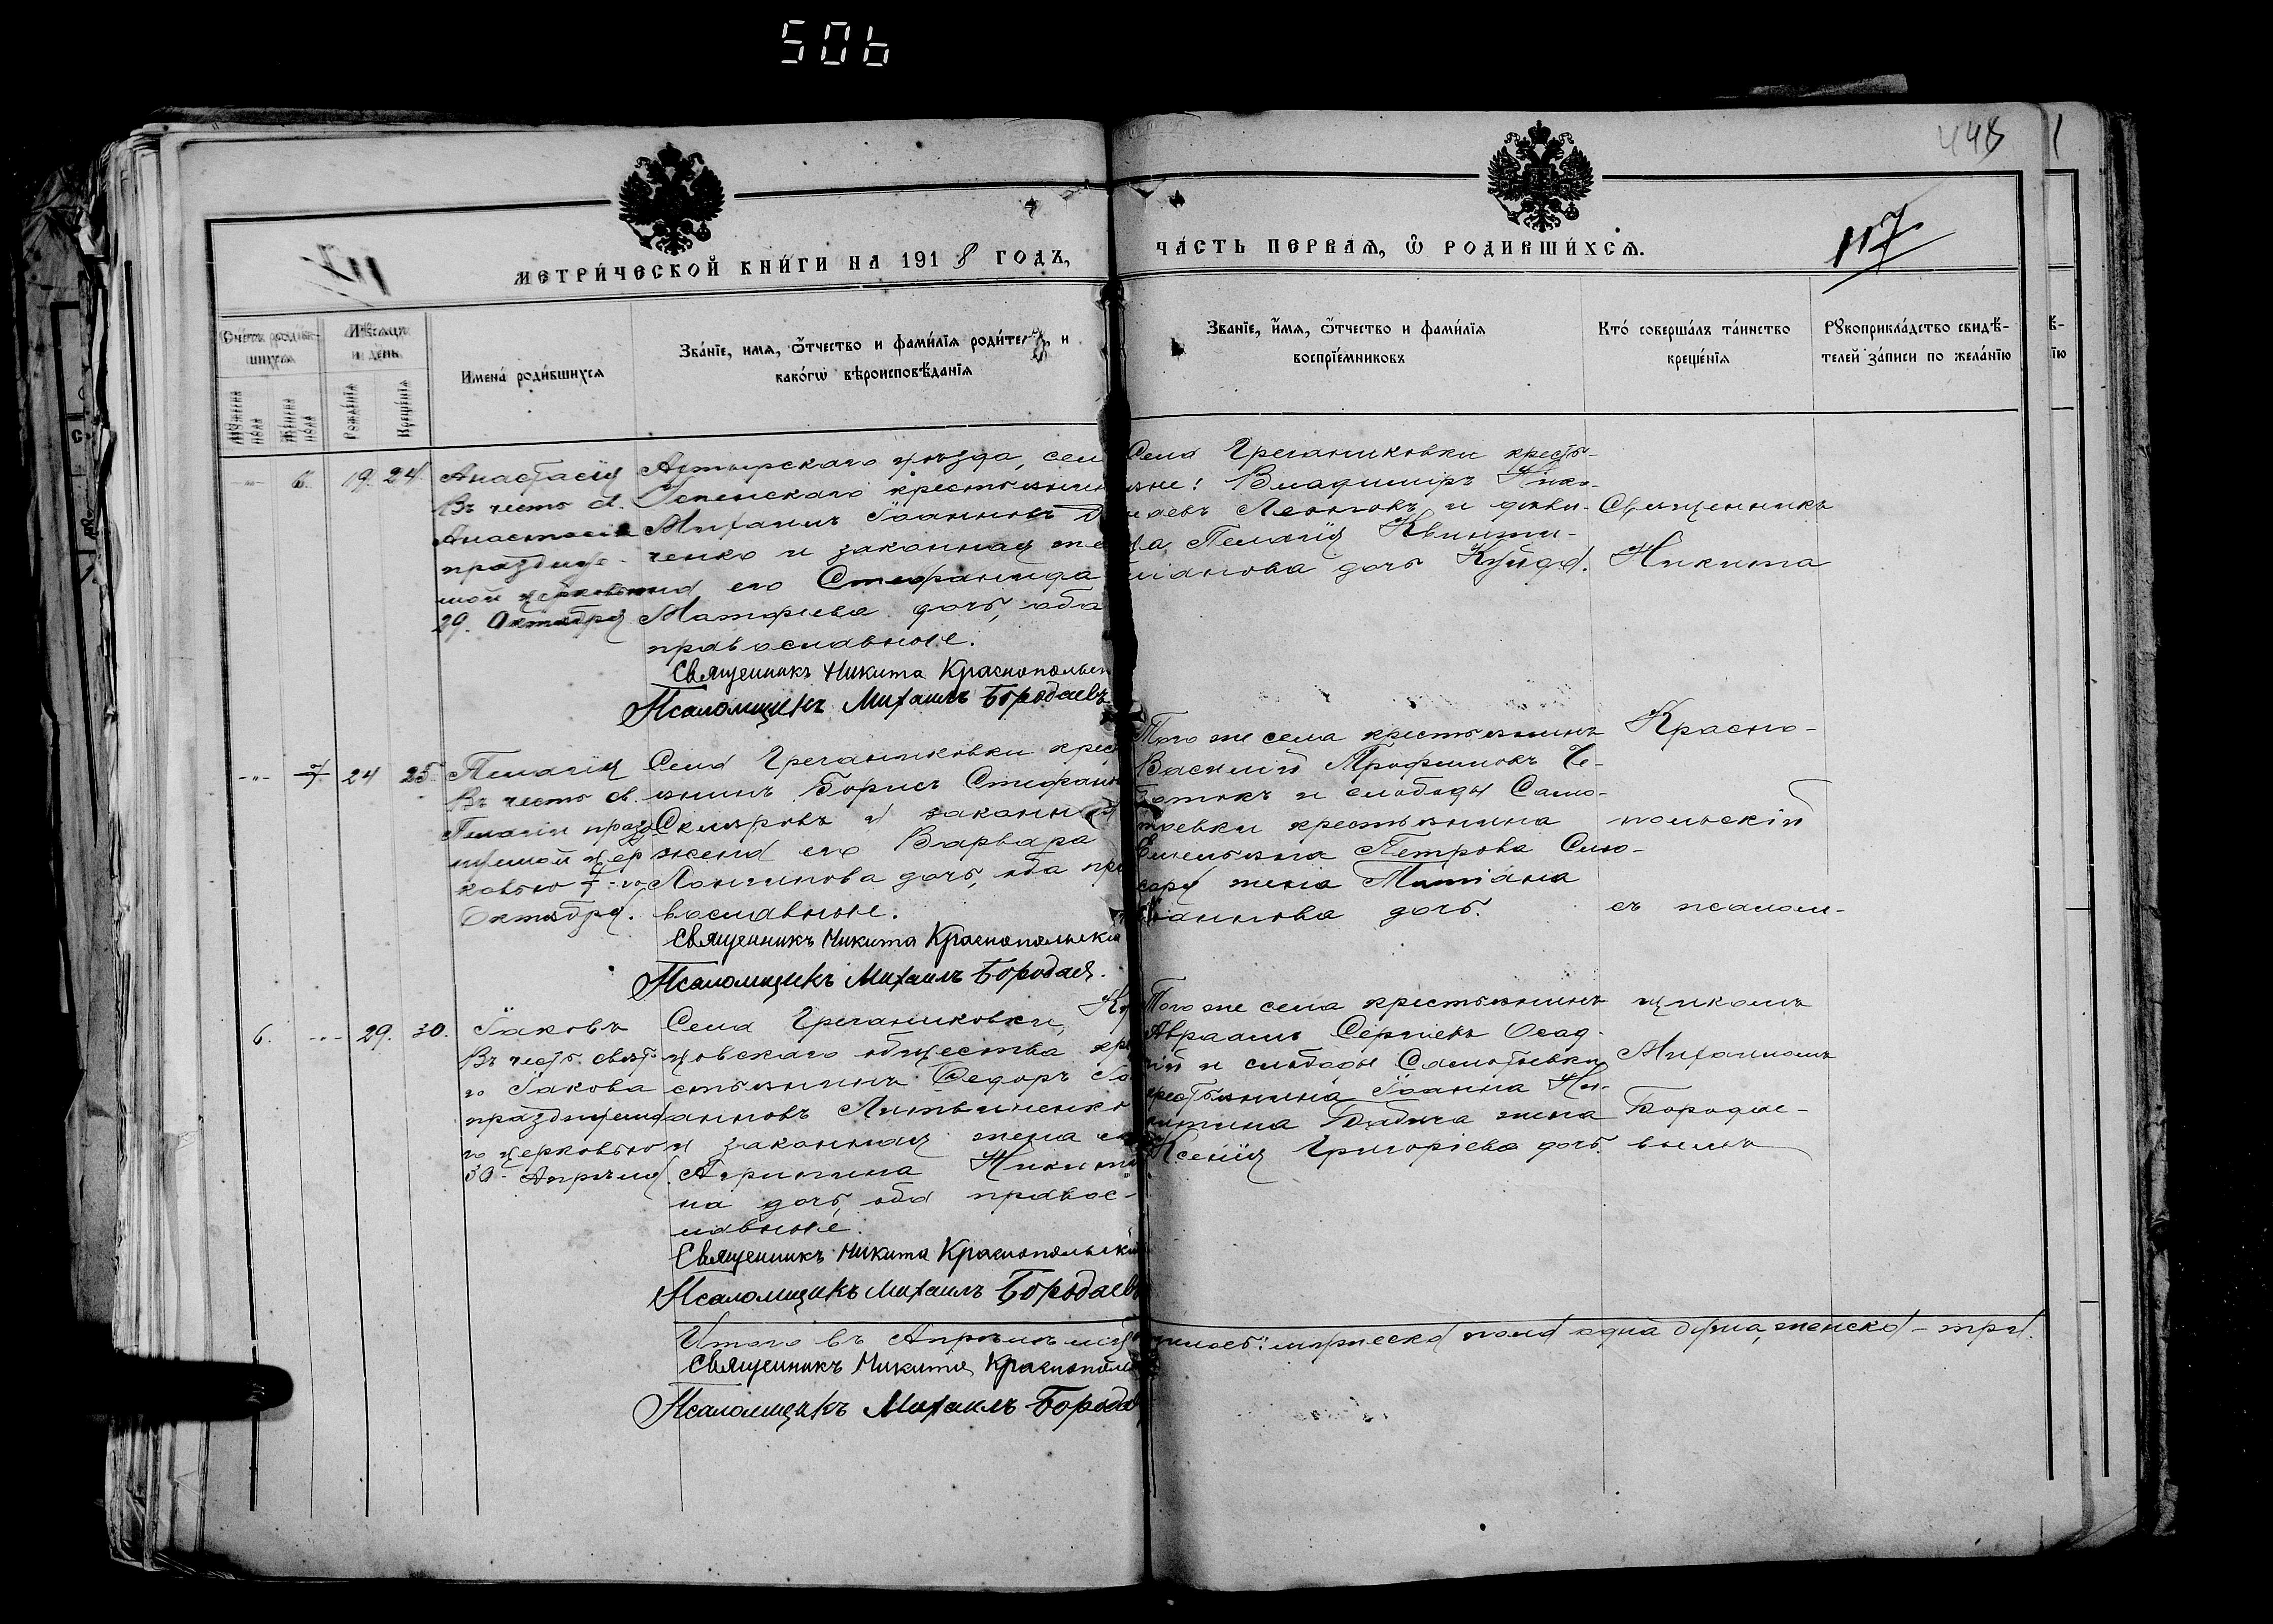 506
448
117
МЕТРИЧЕСКОЙ КНИГИ НА 1918 ГОДЪ,
ЧАСТЬ ПЕРВАЯ, Ѡ РОДИВШИХСЯ.
117
Счетъ родив-
шихся
Мѣсяцъ
и день
Мужеска пола
Женска пола
Рожденія
Крещенія
Имена родившихся
Званіе, имя, ѿтчество и фамилія родителей, и
какогѡ вѣроисповѣданія
Званіе, имя, ѿтчество и фамилія
воспріемниковъ
Кто совершалъ таинство
крещенія
Рукоприкладство свидѣ-
телей записи по желанію
6. 19. 24.
Анастасія
Въ честь св.
Анастасіи
празднуе-
мой церковью
29. Октября
Ахтырскаго уѣзда, сел
Успенскаго крестьянин
Михаилъ Іоанновъ
ченко и законная же
на его Стефанида
Матфіева дочь, оба
православные.
Священникъ Никита Краснопольск
Псаломщикъ Михаилъ Бородаевъ
Села Гречаниковки кресть-
яне: Владиміръ Нико-
лаевъ Леонтовъ и дѣви-
ца Пелагія Квинти-
ліанова дочь
7 24 25
Пелагія
Въ честь св.
Пелагіи празд
нуемой цер
ковью 7-го
Октября.
Села Гречаниковки крес
янинъ Борисъ Стефан
Скляровъ и законн
жена его Варвара
Лонгинова дочь, оба пра
вославные.
Священникъ Никита Краснопольскій
Псаломщикъ Михаилъ Бородаев.
Того же села крестьянинъ
Василій Трофимовъ Че-
ботокъ и слободы Само-
тоевки крестьянина
Емельяна Петрова Слю-
саря жена Татіана
Іоаннова дочь.
6. 29. 30.
Іаковъ
Въ честь свят.
го Іакова
празднуема
го церковью
30 Апрѣля.
Села Гречаниковки, К
цовскаго общества кре
стьянинъ Федоръ Іо
анновъ Литвиненко
и законная жена е
Агрипина Никити
на дочь, оба правос-
лавные.
Священникъ Никита Краснопольскі
Псаломщикъ Михаилъ Бородаев
Того же села крестьянинъ
Авраамъ Сергіевъ Осад-
чій и слободы Самотоевки
крестьянина Іоанна Ни-
китина Бабича жена
Ксенія Григоріева дочь.
Священникъ
Никита
Красно-
польскій
съ псалом-
щикомъ
Михаиломъ
Бородае-
вымъ
Итого въ Апрѣлѣ мѣ
лось: мужеска пола одна душа, женска - три.
Священникъ Никита Краснополь
Псаломщикъ Михаилъ Борода